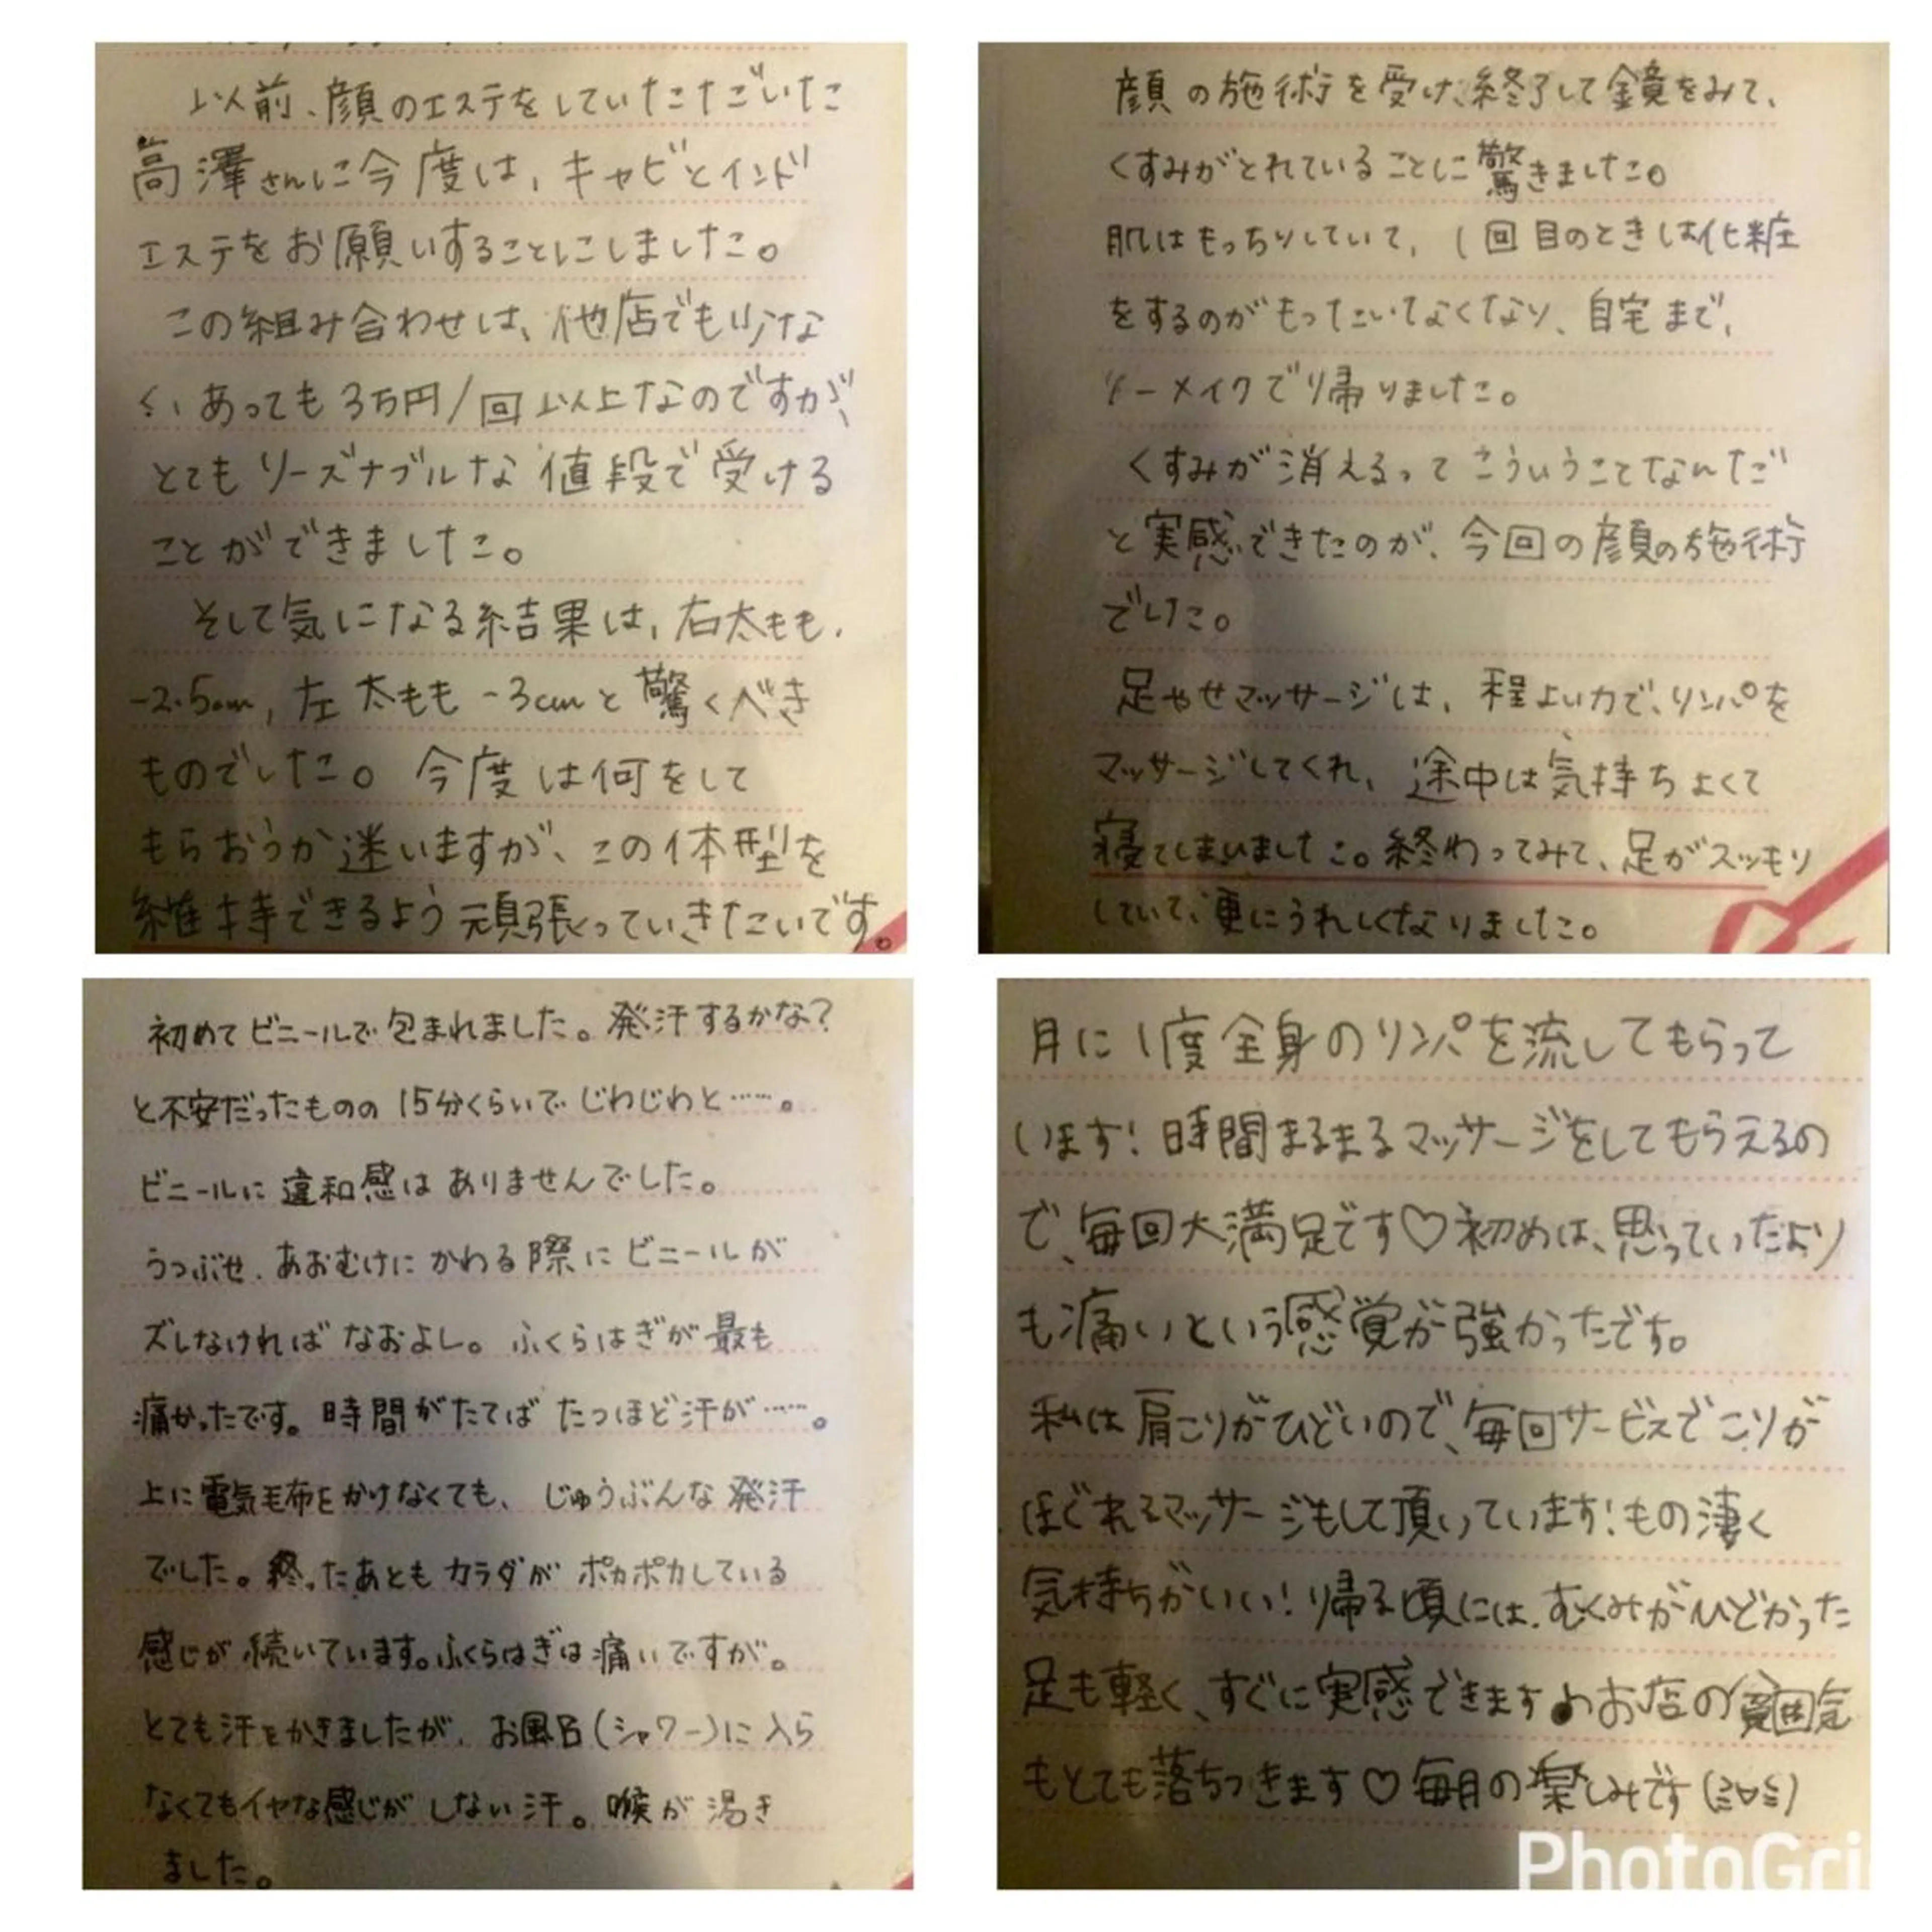 以前、顔のエステをしていただいた
高澤さんに今度は、キャビとインド
エステをお願いすることにしました。
この組み合わせは、他店でも少な
く、あっても3万円/回以上なのですが、
とてもリーズナブルな値段で受ける
ことができました。
そして気になる結果は、右太もも、
-2.5cm, 左太もも -3cmと驚くべき
ものでした。今度は何をして
もらおうか迷いますが、この体型を
維持できるよう頑張っていきたいです。
顔の施術を受け、終了して鏡をみて、
くすみがとれていることに驚きました。
肌はもっちりしていて、1回目のときは化粧
をするのがもったいてなくなり、自宅まで、
ノーメイクで帰りました。
くすみが消えるってこういうことなんだ
と実感できたのが、今回の顔の施術
でした。
足やせマッサージは、程よい力で、リンパを
マッサージしてくれ、途中は気持ちよくて
寝てしまいました。終わってみて、足がスッキリ
していて、更にうれしくなりました。
初めてビニールで包まれました。発汗するかな?
と不安だったものの 15分くらいで じわじわと……。
ビニールに違和感は ありませんでした。
うつぶせ、あおむけに かわる際に ビニールが
ズレなければ なおよし。ふくらはぎが最も
痛かったです。時間がたてば たつほど汗が……。
上に電気毛布をかけなくても、じゅうぶんな発汗
でした。終ったあとも カラダが ポカポカしている
感じが続いています。ふくらはぎは痛いですが。
とても汗をかきましたが、お風呂(シャワー)に入ら
なくてもイヤな感じが しない汗。喉が渇き
ました。
月に1度全身のリンパを流してもらって
います!時間まるまるマッサージをしてもらえるの
で、毎回大満足です♡初めは、思っていたより
も痛いという感覚が強かったです。
私は肩こりがひどいので、毎回サービスでこりが
ほぐれるマッサージもして頂いています!もの凄く
気持ちがいい!帰る頃には、むくみがひどかった
足も軽く、すぐに実感できます♪お店の雰囲気
もとても落ちつきます♡毎月の楽しみです(≧∀≦)
PhotoGri